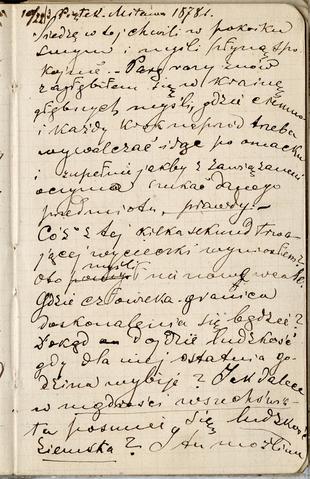 10/22 Piątek. Mitawa 1878 r.
Siedzę w tej chwili w pokoiku
swym i myśli płyną spo
kojnie. – Parę razy znów
zagłębiłem się w krainę
głębszych myśli, gdzie ciemno
i każdy krok naprzód trzeba
wywalczać idąc po omacku
i zupełnie jakby z zawiązanemi
oczyma szukać danego
przedmiotu, prawdy –
Coś z tej kilkasekund trwa
jącej wycieczki wyniosłem?
Oto myśli na nowe
Gdzie człowieka granica
doskonalenia się będzie?
Dokąd dojdzie ludzkość
gdy dla niej ostatnia go
dzina wybije? Jak daleko
w mądrości wszechświa
ta posunie się ludzkość
ziemska? I tu możliwa